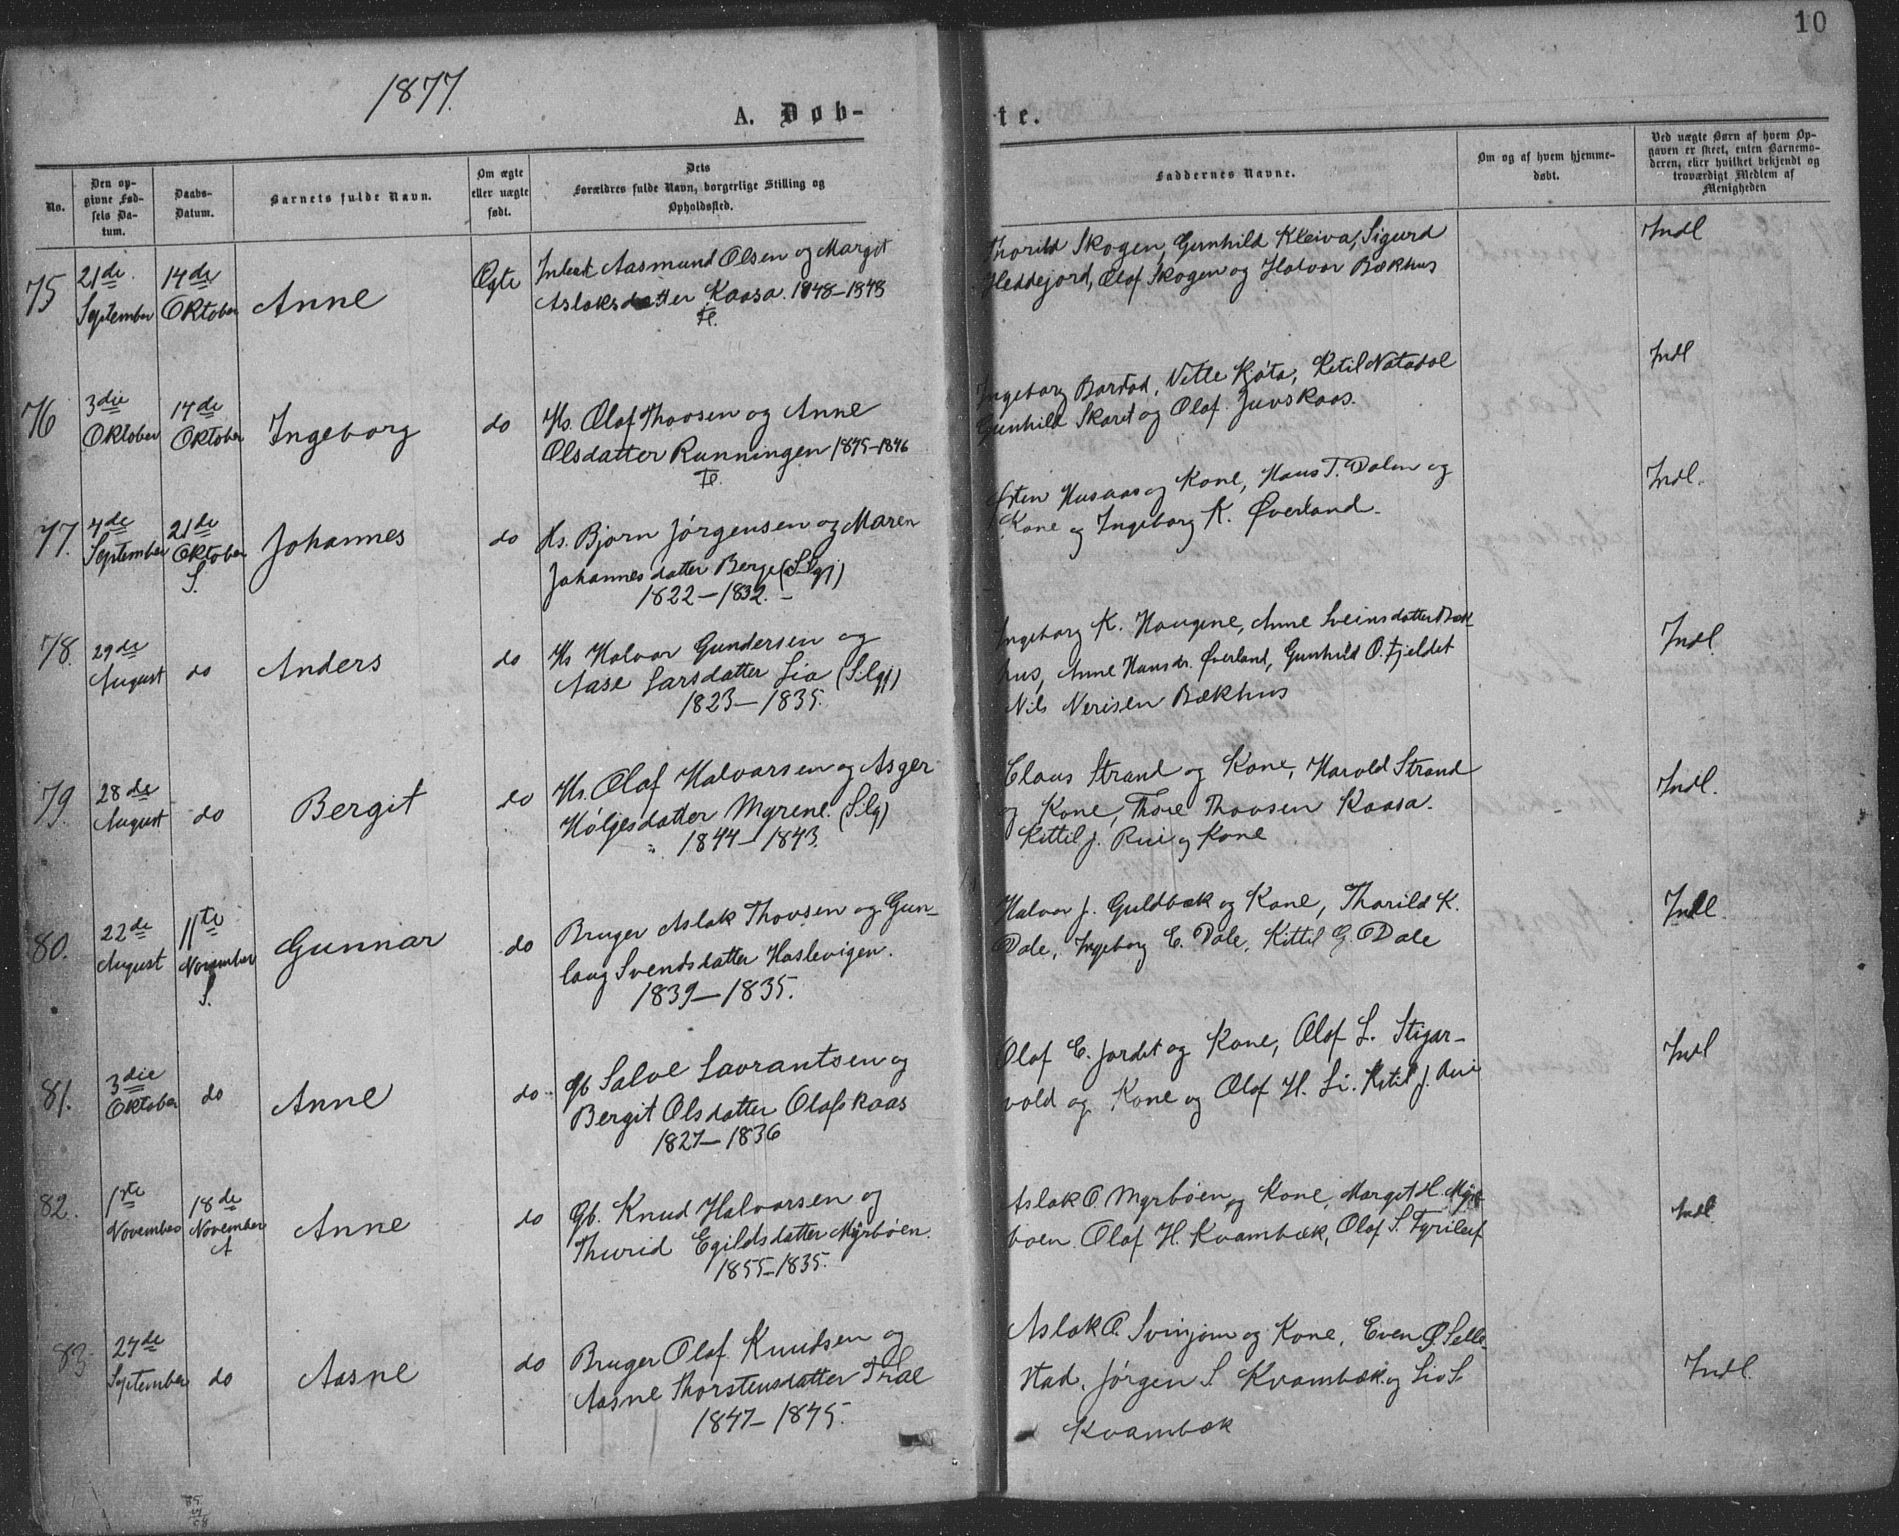 10
1877.
A. Døb-
te.
No.
Den op-
givne Fød-
sels Da-
tum.
Daabs-
Datum.
Barnets fulde Navn.
Om ægte
eller uægte
født.
Dets
Forældres fulde Navn, borgerlige Stilling og
Opholdssted.
Faddernes Navne.
Om og af hvem hjemme-
døbt.
Ved uægte Børn af hvem Op-
gaven er skeet, enten Barnemo-
deren, eller hvilket bekjendt og
troværdigt Medlem af
Menigheden
75
21de
September
14de
Oktober
Anne
Ægte
Inderst Aasmund Olsen og Margit
Aslaksdatter Kaasa. 1848–1848
Te.
Thorild Skogen, Gunhild Kleiva, Sigurd
Heddejord, Olaf Skogen og Halvor Bækhus
Indl
76
3die
Oktober
14de
Oktober
Ingeborg
do
Hs. Olaf Thovsen og Anne
Olsdatter Runningen 1845–1846
Te.
Ingeborg Bardad, Vetle Kjøta, Ketil Natadal
Gunhild Skaret og Olaf Juvskaas.
Indl
77.
4de
September
21de
Oktober
S.
Johannes
do
Hs. Bjørn Jørgensen og Maren
Johannesdatter Berge (S.lgj)
1822–1832.–
Østen Husaas og Kone, Hans T. Dalen og
Kone og Ingeborg K. Øverland.
Indl.
78.
29de
August
do
Anders
do
Hs Halvor Gundersen og
Aase Larsdatter Lia (S.lgj)
1823–1835.
Ingeborg K. Haugene, Anne Sveinsdatter Bæk-
hus, Anne Hansdr. Øverland, Gunhild O. Fjeldet
Nils Nerisen Bækhus
Indl.
79.
28de
August
do
Bergit
do
Hs. Olaf Halvorsen og Asger
Hølgesdatter Myrene. (S.lg)
1844–1843.
Claus Strand og Kone, Harold Strand
og Kone, Thore Thovsen Kaasa.
Kittil J. Rui og Kone
Indl.
80.
22de
August
11te
November
S.
Gunnar
do
Bruger Aslak Thovsen og Gun-
laug Svendsdatter Haslevigen.
1839–1835.
Halvor J. Guldbæk og Kone, Thorild K.
Dale, Ingeborg E. Dale, Kittil G. Dale
Indl.
81.
3die
Oktober
do
Anne
do
Gb Salve Lavrantsen og
Bergit Olsdatter Olafskaas
1827–1836
Olaf E. Jordet og Kone, Olaf L. Stigar-
vold og Kone og Olaf H. Li. Ketil J. Rui
Indl
82.
1ste
November
18de
November
A
Anne
do
Gb. Knud Halvorsen og
Thurid Egildsdatter Myrbøen.
1855–1835.
Aslak O. Myrbøen og Kone, Margit H. Myr-
bøen. Olaf H. Kvambæk, Olaf S. Tyrileif
Indl
83.
27de
September
do
Aasne
do
Bruger Olaf Knudsen og
Aasne Thorstensdatter Træe
1847–1845.
Aslak O. Svinjom og Kone, Even O. Selle-
stad, Jørgen S. Kvambæk og Liv S.
Kvambæk
Indl.